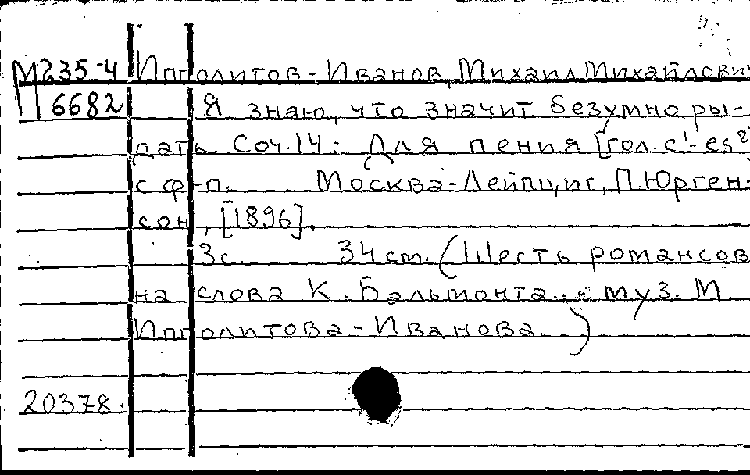 М235-4 Ипполитов-Иванов, Михаил Михайлович
П 6682 Я знаю, что значит безумно ры-
дать Соч.14: Для пения [гол. c¹-es²]
с ф-п. Москва-Лейпциг, П.Юрген-
сон, [1896].
3с. 34cm. (Шесть романсов
на слова К. Бальмонта муз. М
Ипполитова-Иванова)
20378.